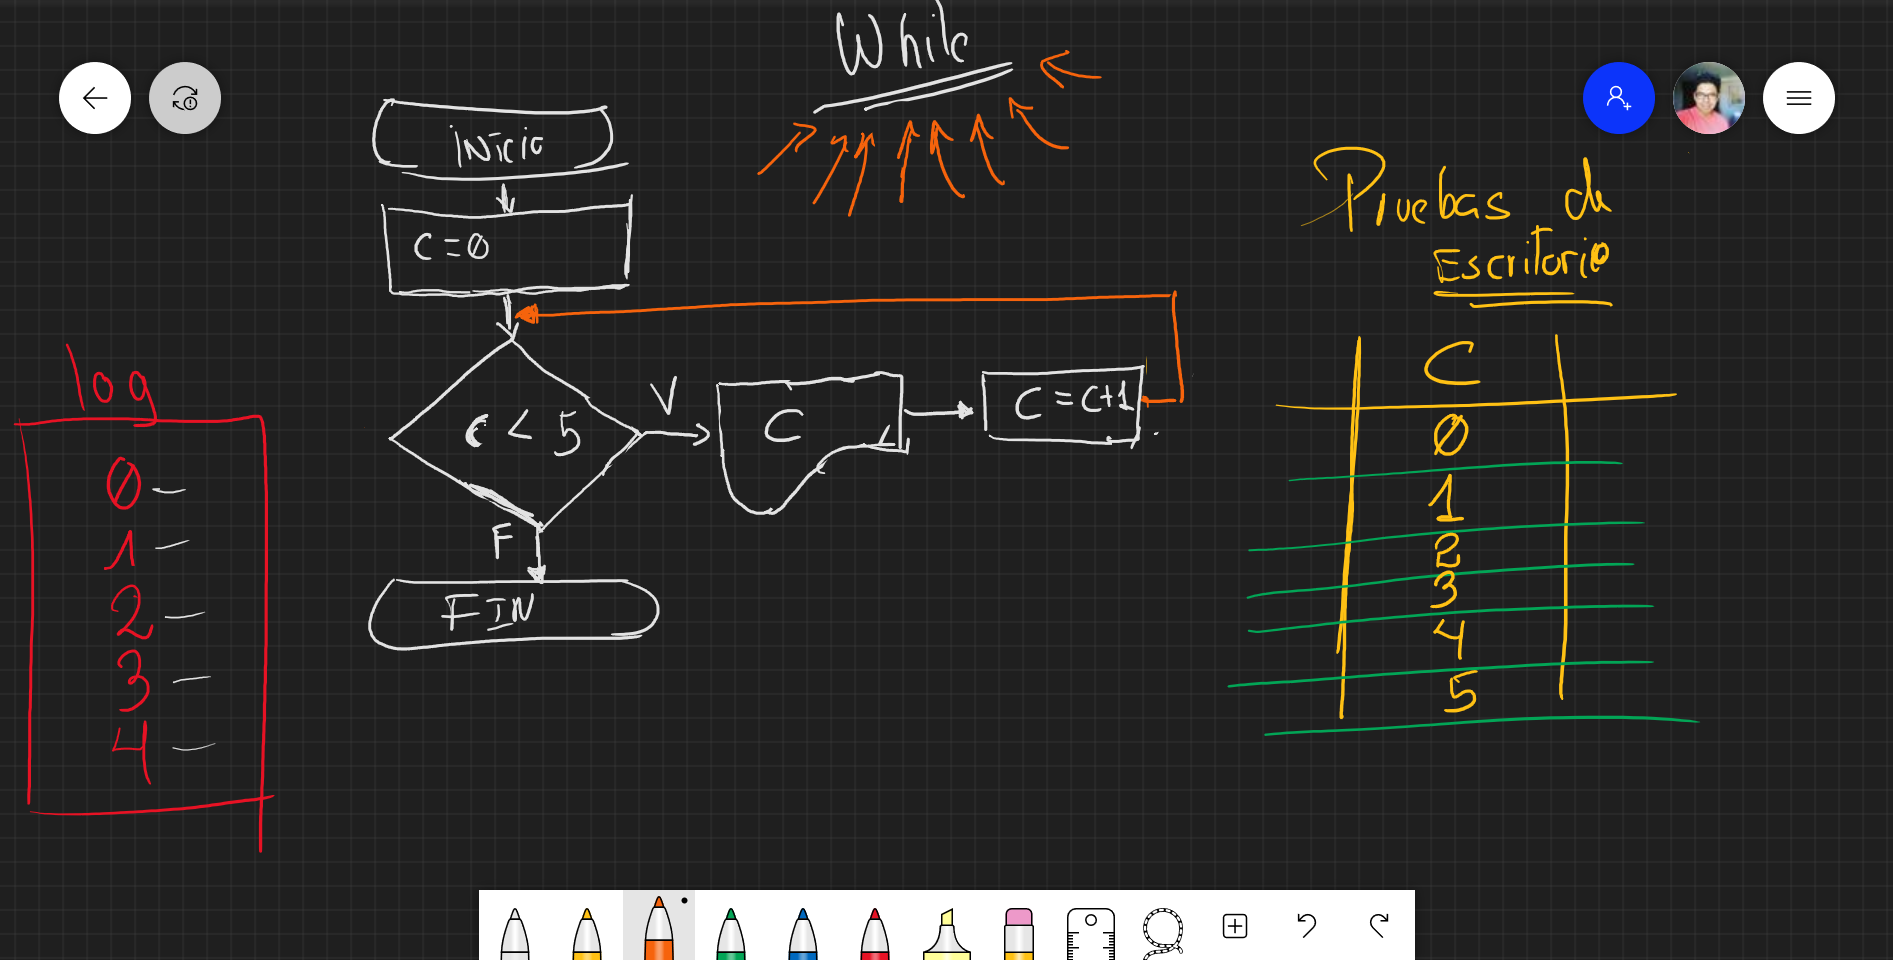 While
INICIO
C = 0
C < 5
V
C
C = C+1
F
FIN
log
0 –
1 –
2 –
3 –
4 –
Pruebas de
Escritorio
C
0
1
2
3
4
5